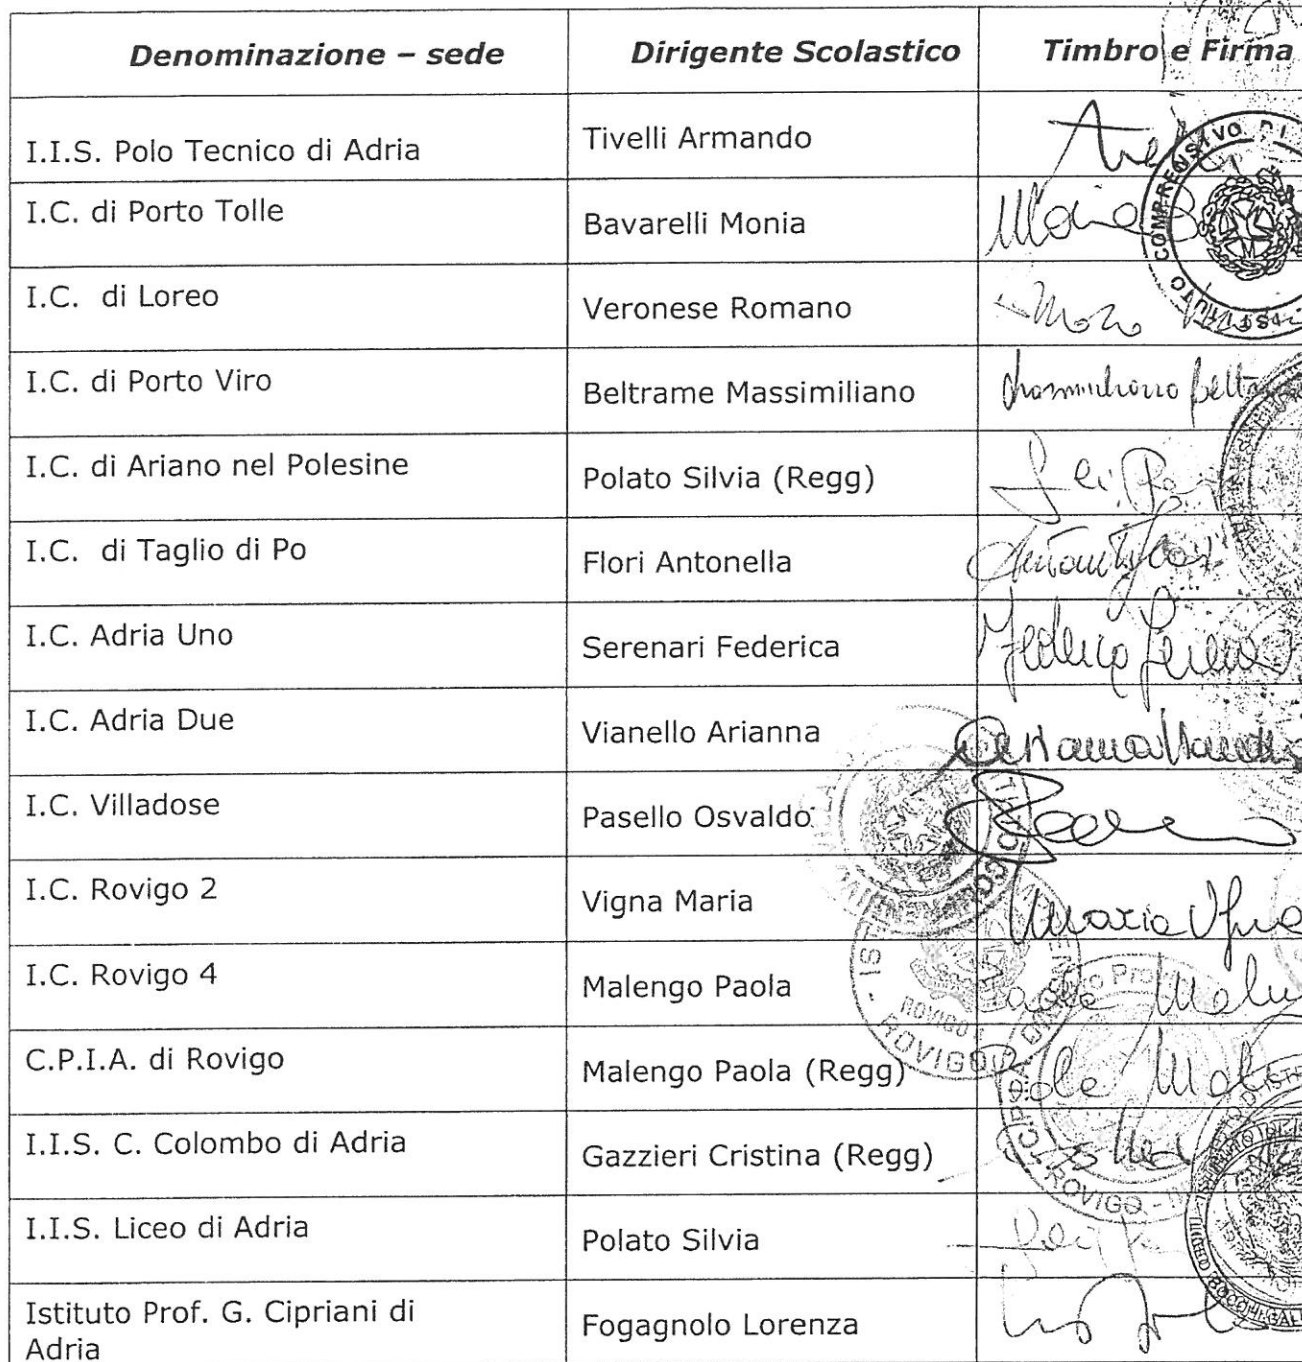 Denominazione – sede Dirigente Scolastico Timbro e Firma
I.I.S. Polo Tecnico di Adria Tivelli Armando
I.C. di Porto Tolle Bavarelli Monia
I.C. di Loreo Veronese Romano
I.C. di Porto Viro Beltrame Massimiliano
I.C. di Ariano nel Polesine Polato Silvia (Regg)
I.C. di Taglio di Po Flori Antonella
I.C. Adria Uno Serenari Federica
I.C. Adria Due Vianello Arianna
I.C. Villadose Pasello Osvaldo
I.C. Rovigo 2 Vigna Maria
I.C. Rovigo 4 Malengo Paola
C.P.I.A. di Rovigo Malengo Paola (Regg)
I.I.S. C. Colombo di Adria Gazzieri Cristina (Regg)
I.I.S. Liceo di Adria Polato Silvia
Istituto Prof. G. Cipriani di Fogagnolo Lorenza
Adria